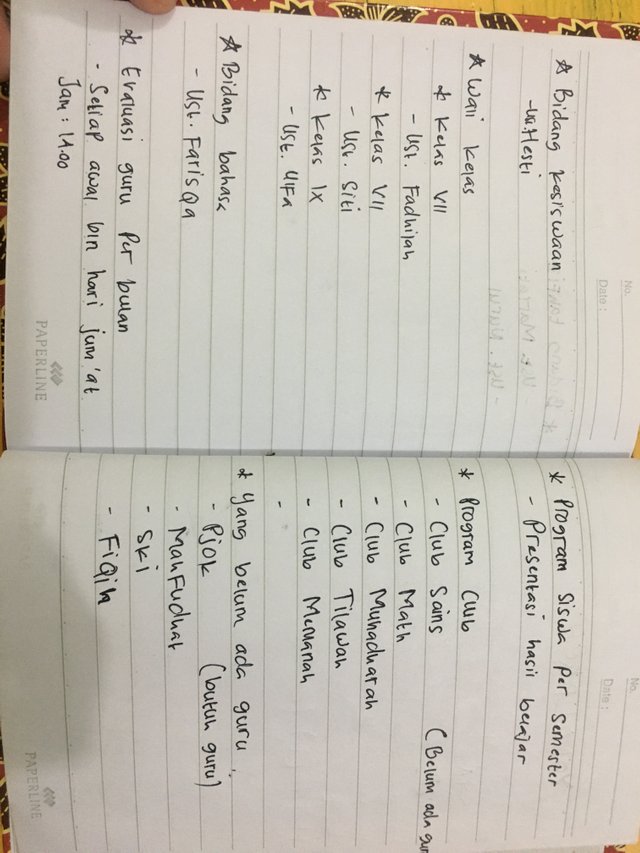 No.
Date :
☆ Bidang kesiswaan
- Ust. Hesti
★ Wali kelas
* Kelas VII
- Ust. Fadhilah
* Kelas VII
- Ust. Siti
* Kelas IX
- Ust. Ulfa
☆ Bidang bahasa
- Ust. Farisqa
* Evaluasi guru Per bulan
- Setiap awal bln hari jum'at
Jam : 14.00
PAPERLINE
No.
Date :
* Program Siswa Per Semester
- Presentasi hasil belajar
* Program Club
- Club Sains (Belum ada gur
- Club Math
- Club Muhadharah
- Club Tilawah
- Club Memanah
-
* Yang belum ada guru
- Pjok (butuh guru)
- Mahfudhat
- SKI
- Fiqih
PAPERLINE